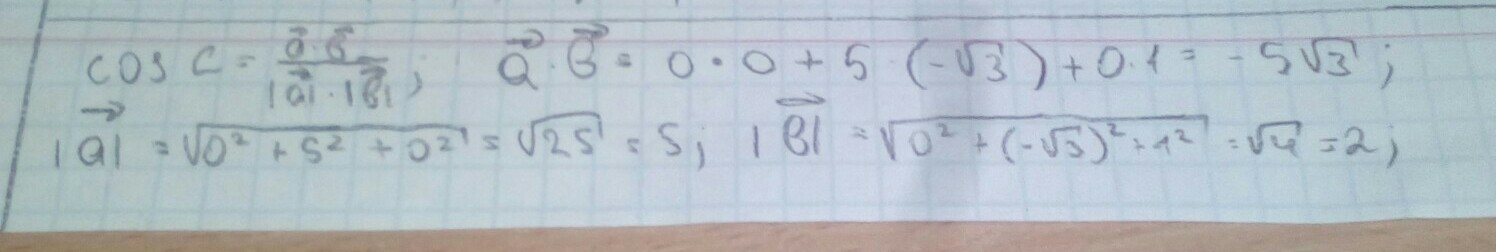 cos C = \frac{\vec{a}·\vec{b}}{|\vec{a}|·|\vec{b}|}; \vec{a}·\vec{b} = 0·0 + 5 (-√3) + 0·1 = -5√3;
|\vec{a}| = √(0² + 5² + 0²) = √25 = 5; |\vec{b}| = √(0² + (-√3)² + 1²) = √4 = 2;